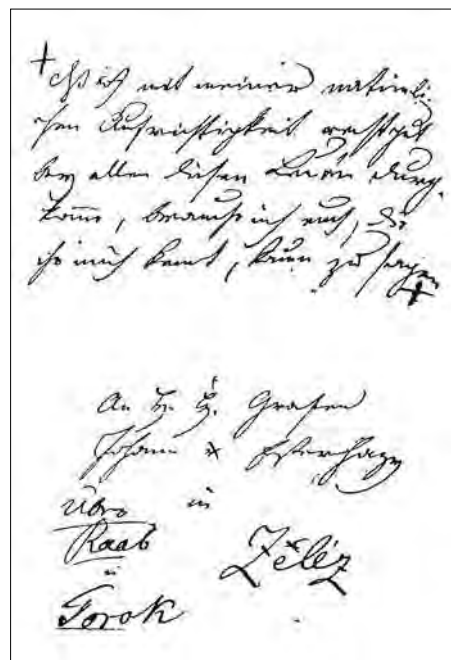 + Daß ich mit meiner natürli-
chen Aufrichtigkeit recht gut
bey allen diesen Leuten durch-
kom̄e, brauche ich euch, die
ihr mich kennt, kaum zu sagen
+
An Grafen
Johann * Esterhazy
Über in
Raab
Zeléz
Torok